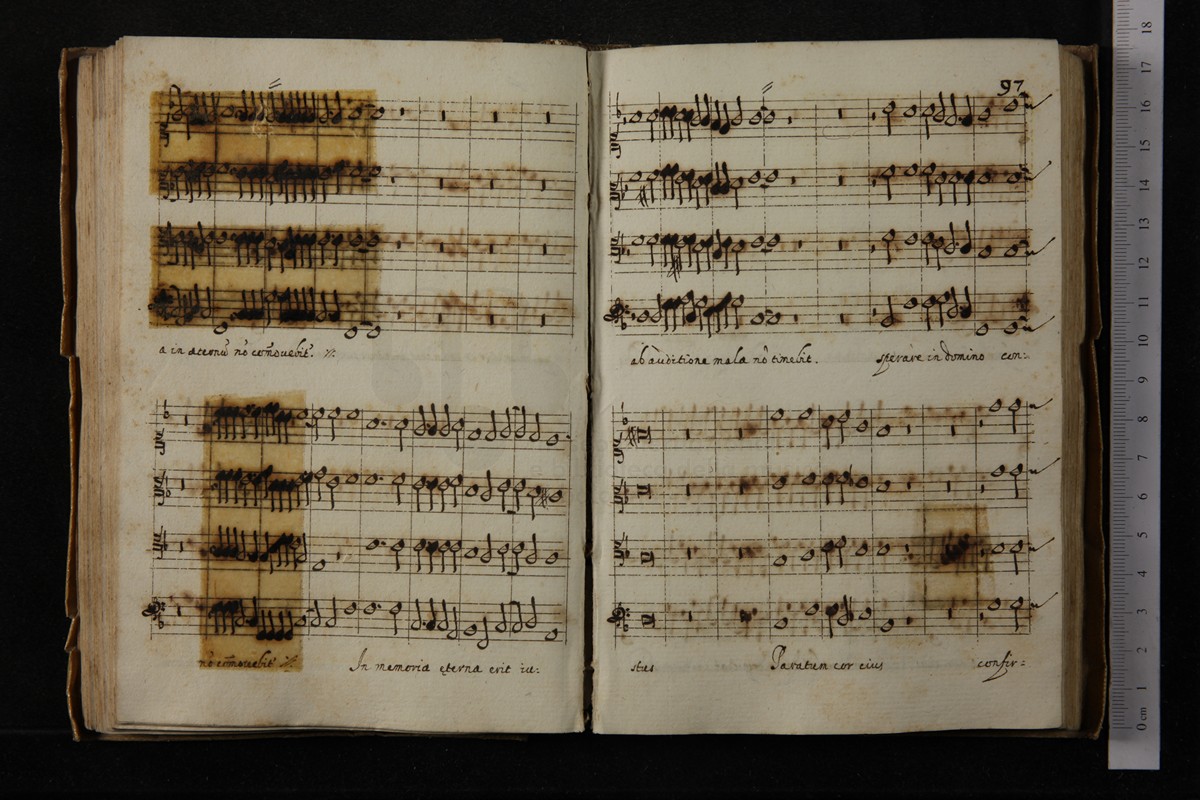 a in æternũ nõ cõmovebit̃. //.
nõ cõmovebit̃ //.
In memoria ęterna erit iu:
97
ab auditione mala nõ timebit.
sperare in domino con:
stus
Paratum cor eius
confir:
0 cm 1 2 3 4 5 6 7 8 9 10 11 12 13 14 15 16 17 18